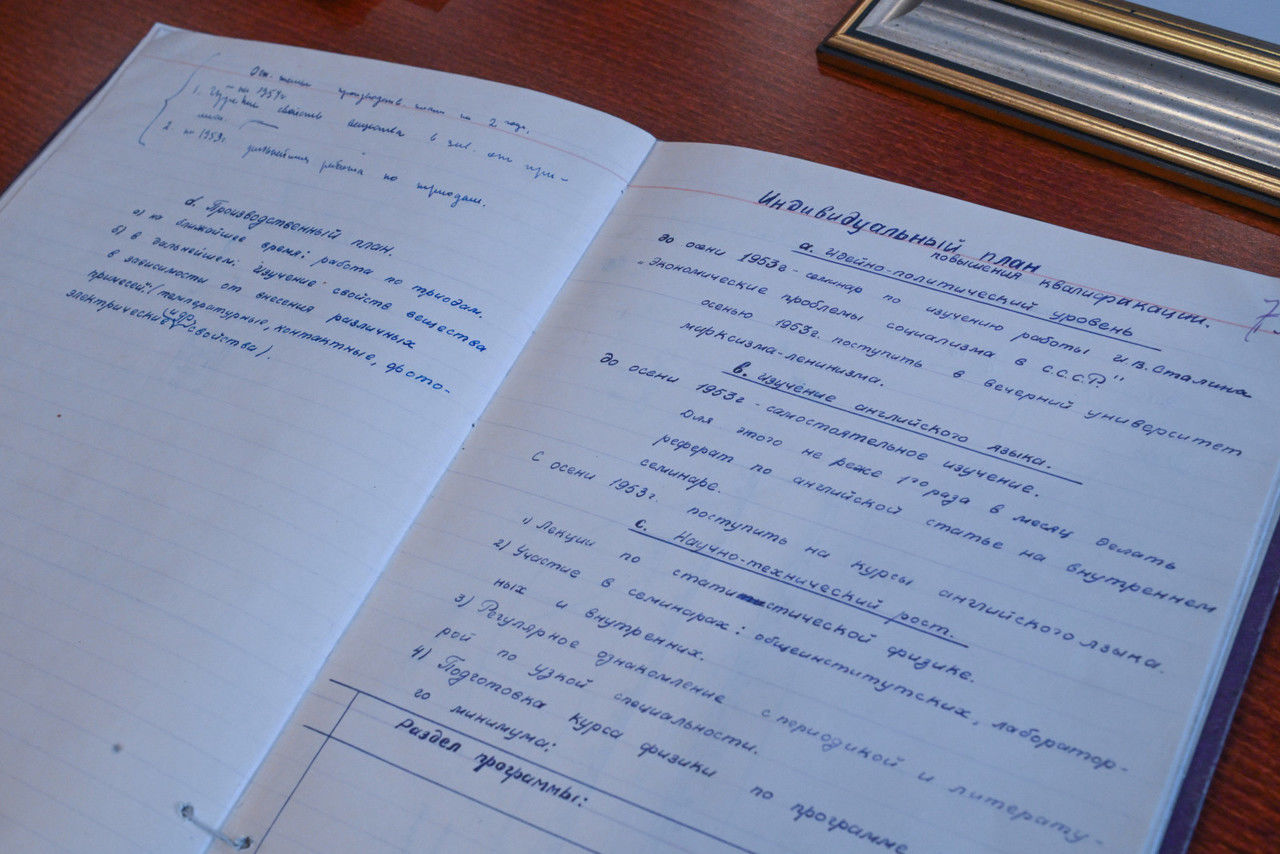 1. – на 1953г
свойств вещества в зав. от при-
2. на 1953г. дальнейшая работа по триодам.
d. Производственный план.
а) на ближайшее время: работа по триодам.
б) в дальнейшем: изучение свойств вещества
в зависимости от внесения различных
примесей. (температурные, контактные, фото-
электрические и др свойства).
Индивидуальный план
повышения квалификации.
а. идейно-политический уровень
до осени 1953г - семинар по изучению работы И.В. Сталина
„Экономические проблемы социализма в С.С.С.Р."
осенью 1953г. поступить в вечерний университет
марксизма-ленинизма.
в. изучение английского языка.
до осени 1953г - самостоятельное изучение.
Для этого не реже 1го раза в месяц делать
реферат по английской статье на внутреннем
семинаре.
С осени 1953г. поступить на курсы английского языка.
с. Научно-технический рост.
1) Лекции по статистической физике.
2) Участие в семинарах: общеинститутских, лаборатор-
ных и внутренних.
3) Регулярное ознакомление с периодикой и литерату-
рой по узкой специальности.
4) Подготовка курса физики по программе
го минимума:
Раздел программы:
7